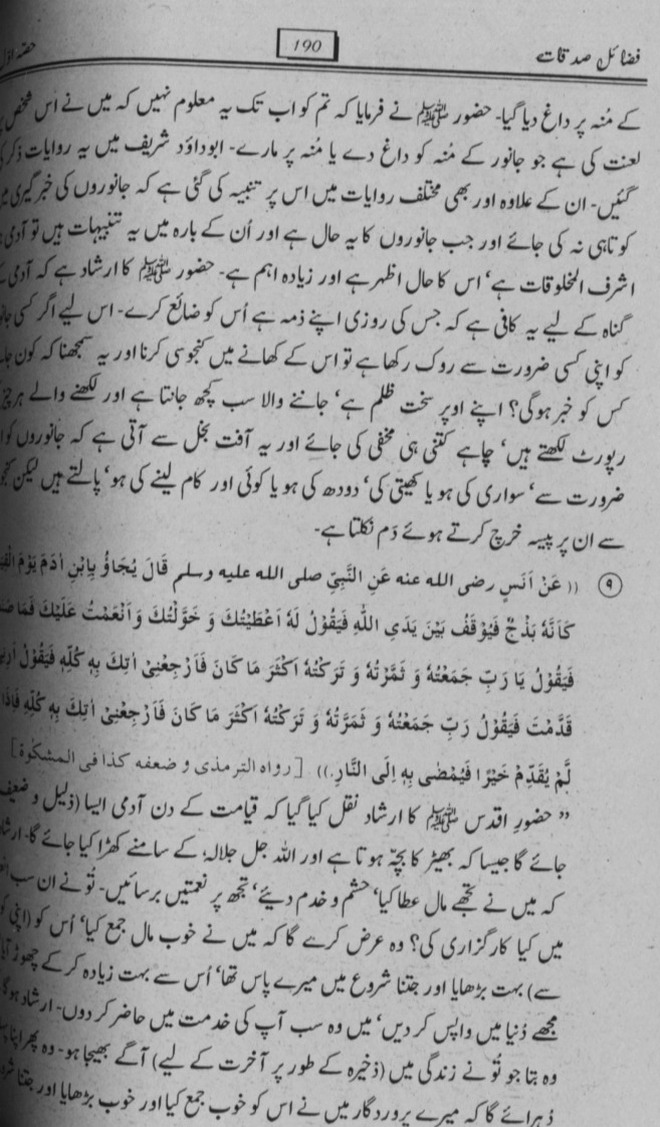 فضائل صدقات 190 حصہ اول
کے مُنہ پر داغ دیا گیا۔ حضور ﷺ نے فرمایا کہ تم کو اب تک یہ معلوم نہیں کہ میں نے اس شخص پر
لعنت کی ہے جو جانور کے مُنہ کو داغ دے یا مُنہ پر مارے۔ ابوداؤد شریف میں یہ روایات ذکر کی
گئیں۔ ان کے علاوہ اور بھی مختلف روایات میں اس پر تنبیہ کی گئی ہے کہ جانوروں کی خبر گیری میں
کوتاہی نہ کی جائے اور جب جانوروں کا یہ حال ہے اور اُن کے بارہ میں یہ تنبیہات ہیں تو آدمی
اشرف المخلوقات ہے‘ اس کا حال اظہر ہے اور زیادہ اہم ہے۔ حضور ﷺ کا ارشاد ہے کہ آدمی کے
گناہ کے لیے یہ کافی ہے کہ جس کی روزی اپنے ذمہ ہے اُس کو ضائع کرے۔ اس لیے اگر کسی
کو اپنی کسی ضرورت سے روک رکھا ہے تو اس کے کھانے میں کنجوسی کرنا اور یہ سمجھنا کہ کون
کس کو خبر ہوگی؟ اپنے اوپر سخت ظلم ہے‘ جاننے والا سب کچھ جانتا ہے اور لکھنے والے ہر چیز
رپورٹ لکھتے ہیں‘ چاہے کتنی ہی مخفی کی جائے اور یہ آفت بخل سے آتی ہے کہ جانوروں کو
ضرورت سے‘ سواری کی ہو یا کھیتی کی‘ دودھ کی ہو یا کوئی اور کام لینے کی ہو‘ پالتے ہیں لیکن
سے ان پر پیسہ خرچ کرتے ہوئے دَم نکلتا ہے۔
۹ (( عَنْ اَنَسٍ رضی الله عنه عَنِ النَّبِيِّ صلی الله علیه وسلم قَالَ يُجَاؤُ بِابْنِ اٰدَمَ يَوْمَ
كَاَنَّهٗ بَذْجٌ فَيُوْقَفُ بَيْنَ يَدَىِ اللّٰهِ فَيَقُوْلُ لَهٗ اَعْطَيْتُكَ وَ خَوَّلْتُكَ وَ اَنْعَمْتُ عَلَيْكَ فَمَا
فَيَقُوْلُ يَا رَبِّ جَمَعْتُهٗ وَ ثَمَّرْتُهٗ وَ تَرَكْتُهٗ اَكْثَرَ مَا كَانَ فَارْجِعْنِىْ اٰتِكَ بِهٖ كُلِّهٖ فَيَقُوْلُ
قَدَّمْتَ فَيَقُوْلُ رَبِّ جَمَعْتُهٗ وَ ثَمَرَّتُهٗ وَ تَرَكْتُهٗ اَكْثَرَ مَا كَانَ فَارْجِعْنِىْ اٰتِكَ بِهٖ كُلِّهٖ فَاِذَا
لَّمْ يُقَدِّمْ خَيْرًا فَيُمْضٰى بِهٖ اِلَى النَّارِ۔)) [رواه الترمذی و ضعفه کذا فی المشکٰوة]
’’حضورِ اقدس ﷺ کا ارشاد نقل کیا گیا کہ قیامت کے دن آدمی ایسا (ذلیل و ضعیف
جائے گا جیسا کہ بھیڑ کا بچہ ہوتا ہے اور اللہ جل جلالہٗ کے سامنے کھڑا کیا جائے گا۔ ارشاد
کہ میں نے تجھے مال عطا کیا‘ حشم و خدم دیئے‘ تجھ پر نعمتیں برسائیں۔ تُو نے ان سب
میں کیا کارگزاری کی؟ وہ عرض کرے گا کہ میں نے خوب مال جمع کیا‘ اُس کو (اپنی
سے) بہت بڑھایا اور جتنا شروع میں میرے پاس تھا‘ اُس سے بہت زیادہ کر کے چھوڑ آیا
مجھے دُنیا میں واپس کر دیں‘ میں وہ سب آپ کی خدمت میں حاضر کر دوں۔ ارشاد ہوگا
وہ بتا جو تُو نے زندگی میں (ذخیرہ کے طور پر آخرت کے لیے) آگے بھیجا ہو۔ وہ پھر اپنا
دُہرائے گا کہ میرے پروردگار میں نے اس کو خوب جمع کیا اور خوب بڑھایا اور جتنا